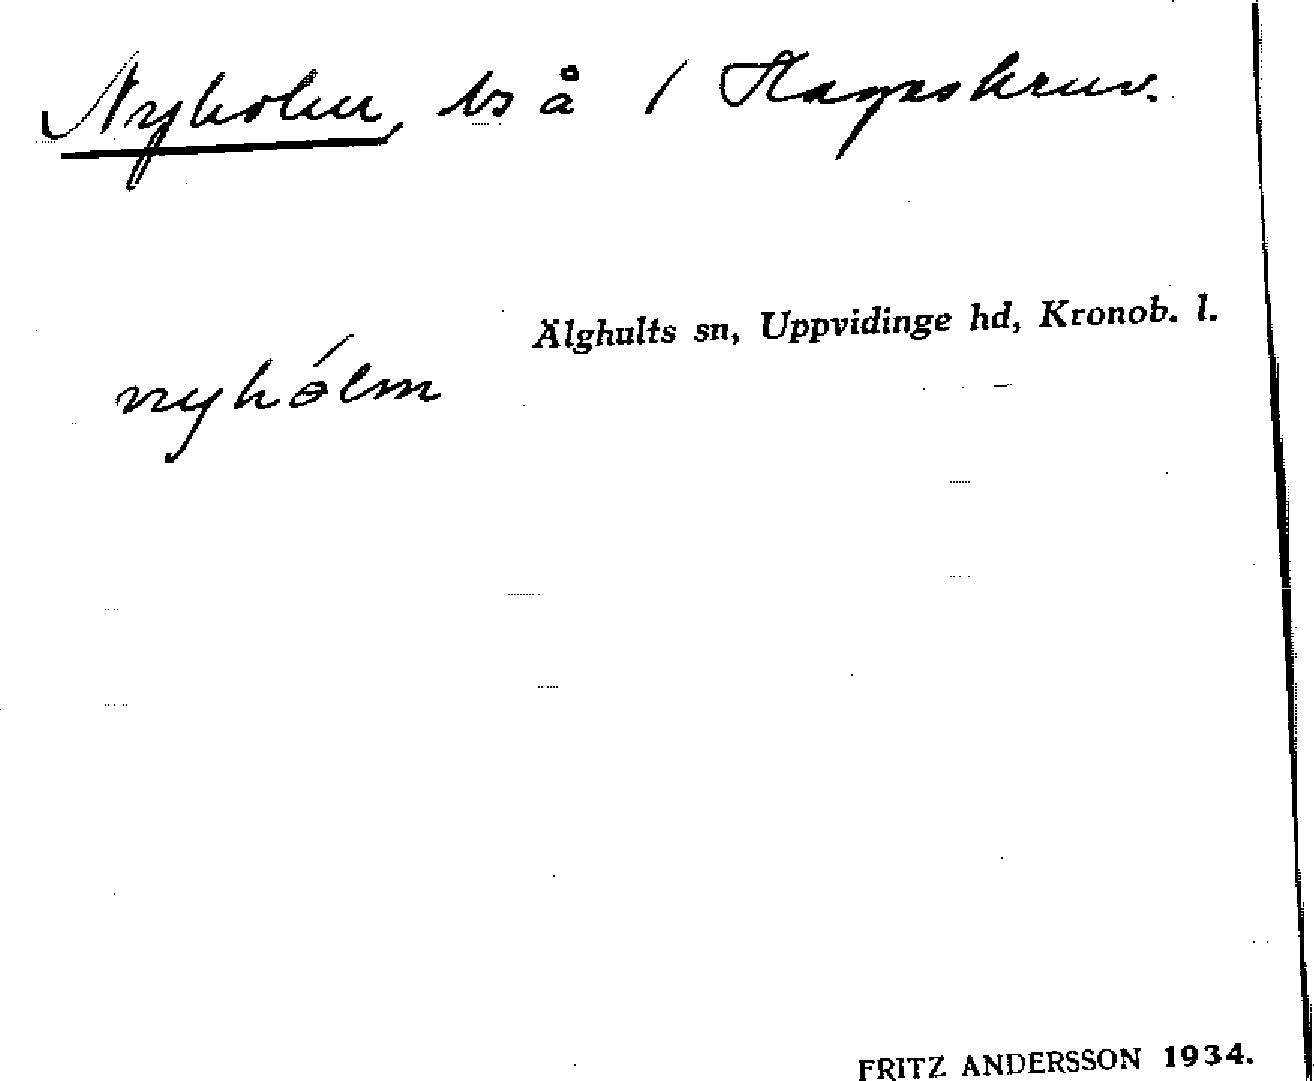 Nyholm, bs å 1 Hagreskruv.
Älghults sn, Uppvidinge hd, Kronob. l.
nyhólm
FRITZ ANDERSSON 1934.